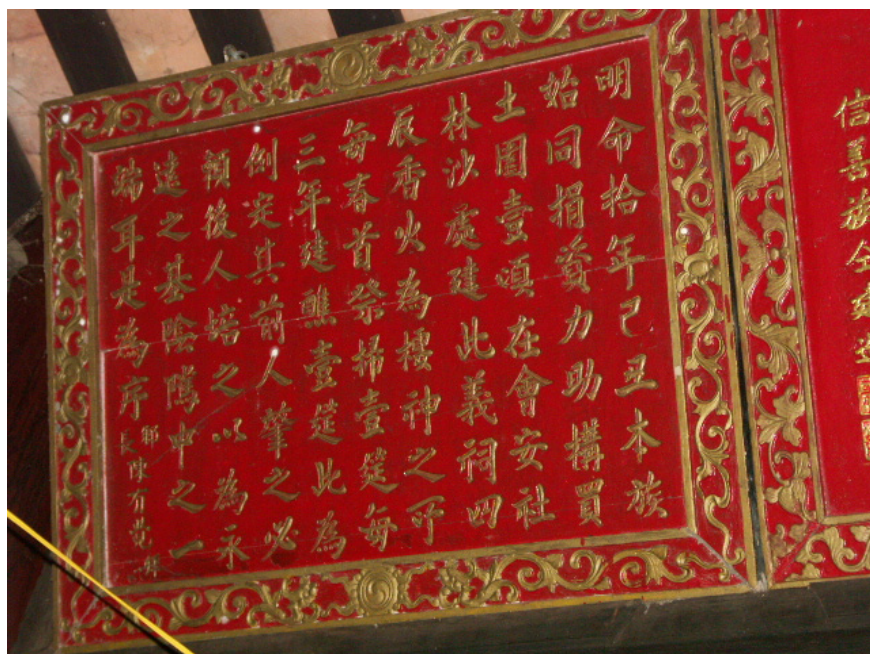 信善族仝建造
明命拾年己丑本族
始同捐資力助構買
土園壹頃在會安社
林沙處建此義祠四
辰香火為棲神之所
每春首祭掃壹筵每
三年建醮壹筵此為
例定其前人肇之必
預後人培之以為永
遠之基陰隲中之一
端耳是為序